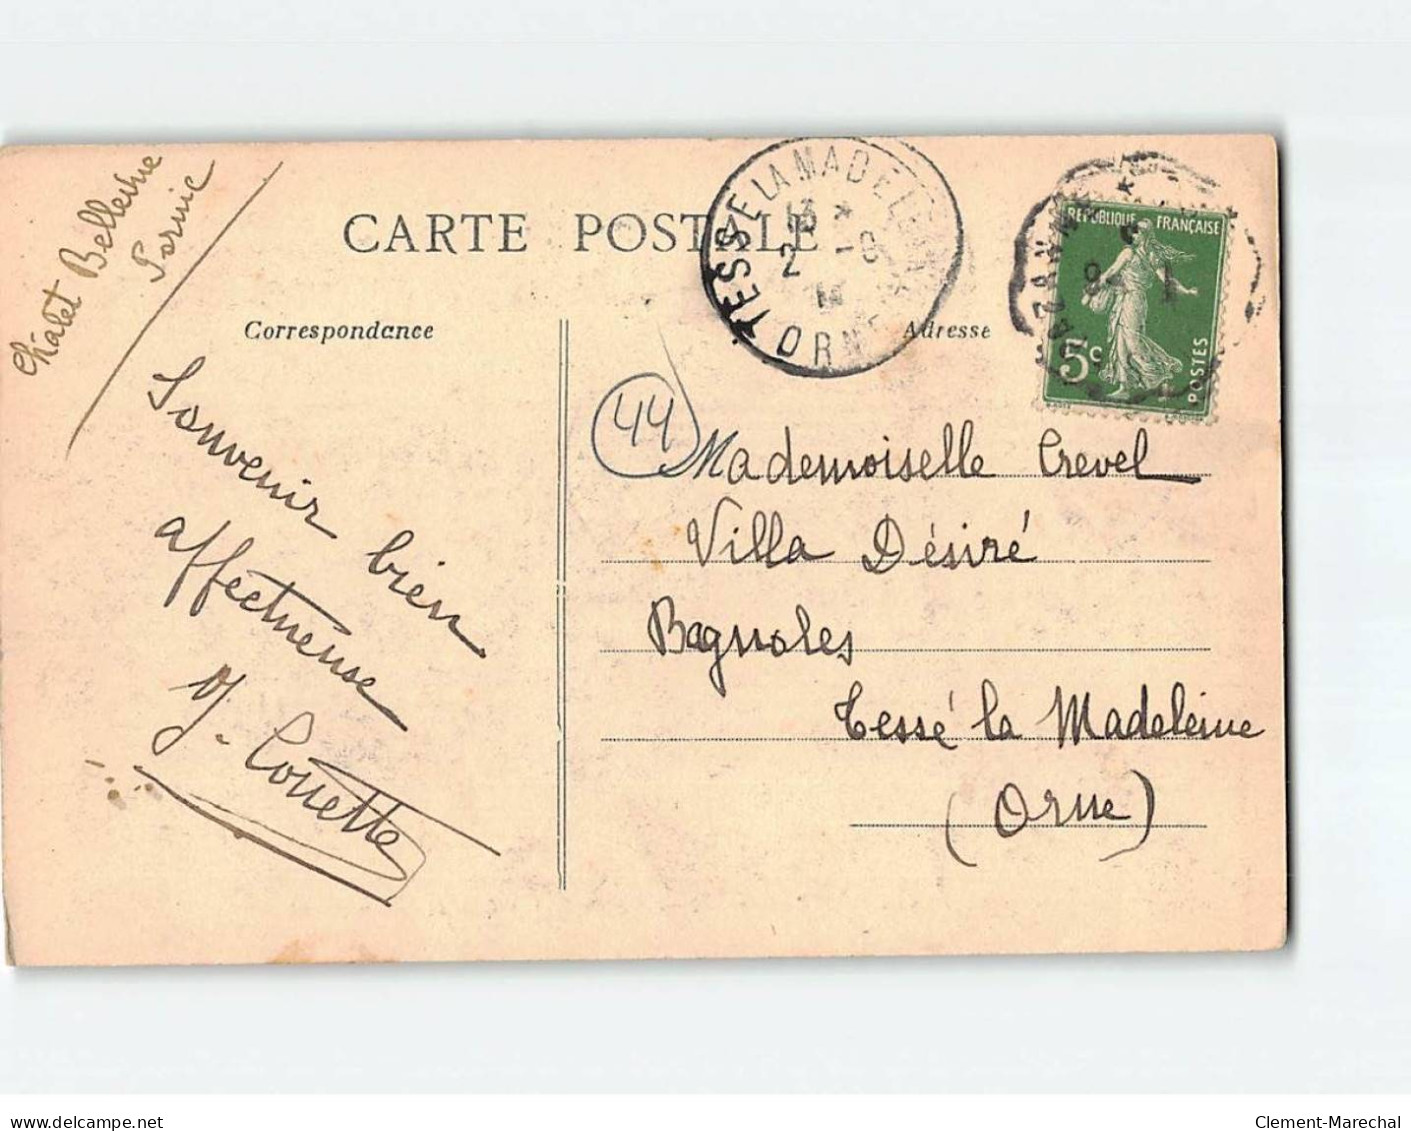 Châlet Bellevue
Pornic
CARTE POSTALE
Correspondance
Adresse
TESSE LA MADELEINE
13 *
2 - 8
14
ORNE
RÉPUBLIQUE FRANÇAISE
5c
POSTES
44
Souvenir bien
affectueuse
Y. Couette
Mademoiselle Crevel
Villa Désiré
Bagnoles
Tessé la Madeleine
(Orne)
www.delcampe.net
Clement-Marechal